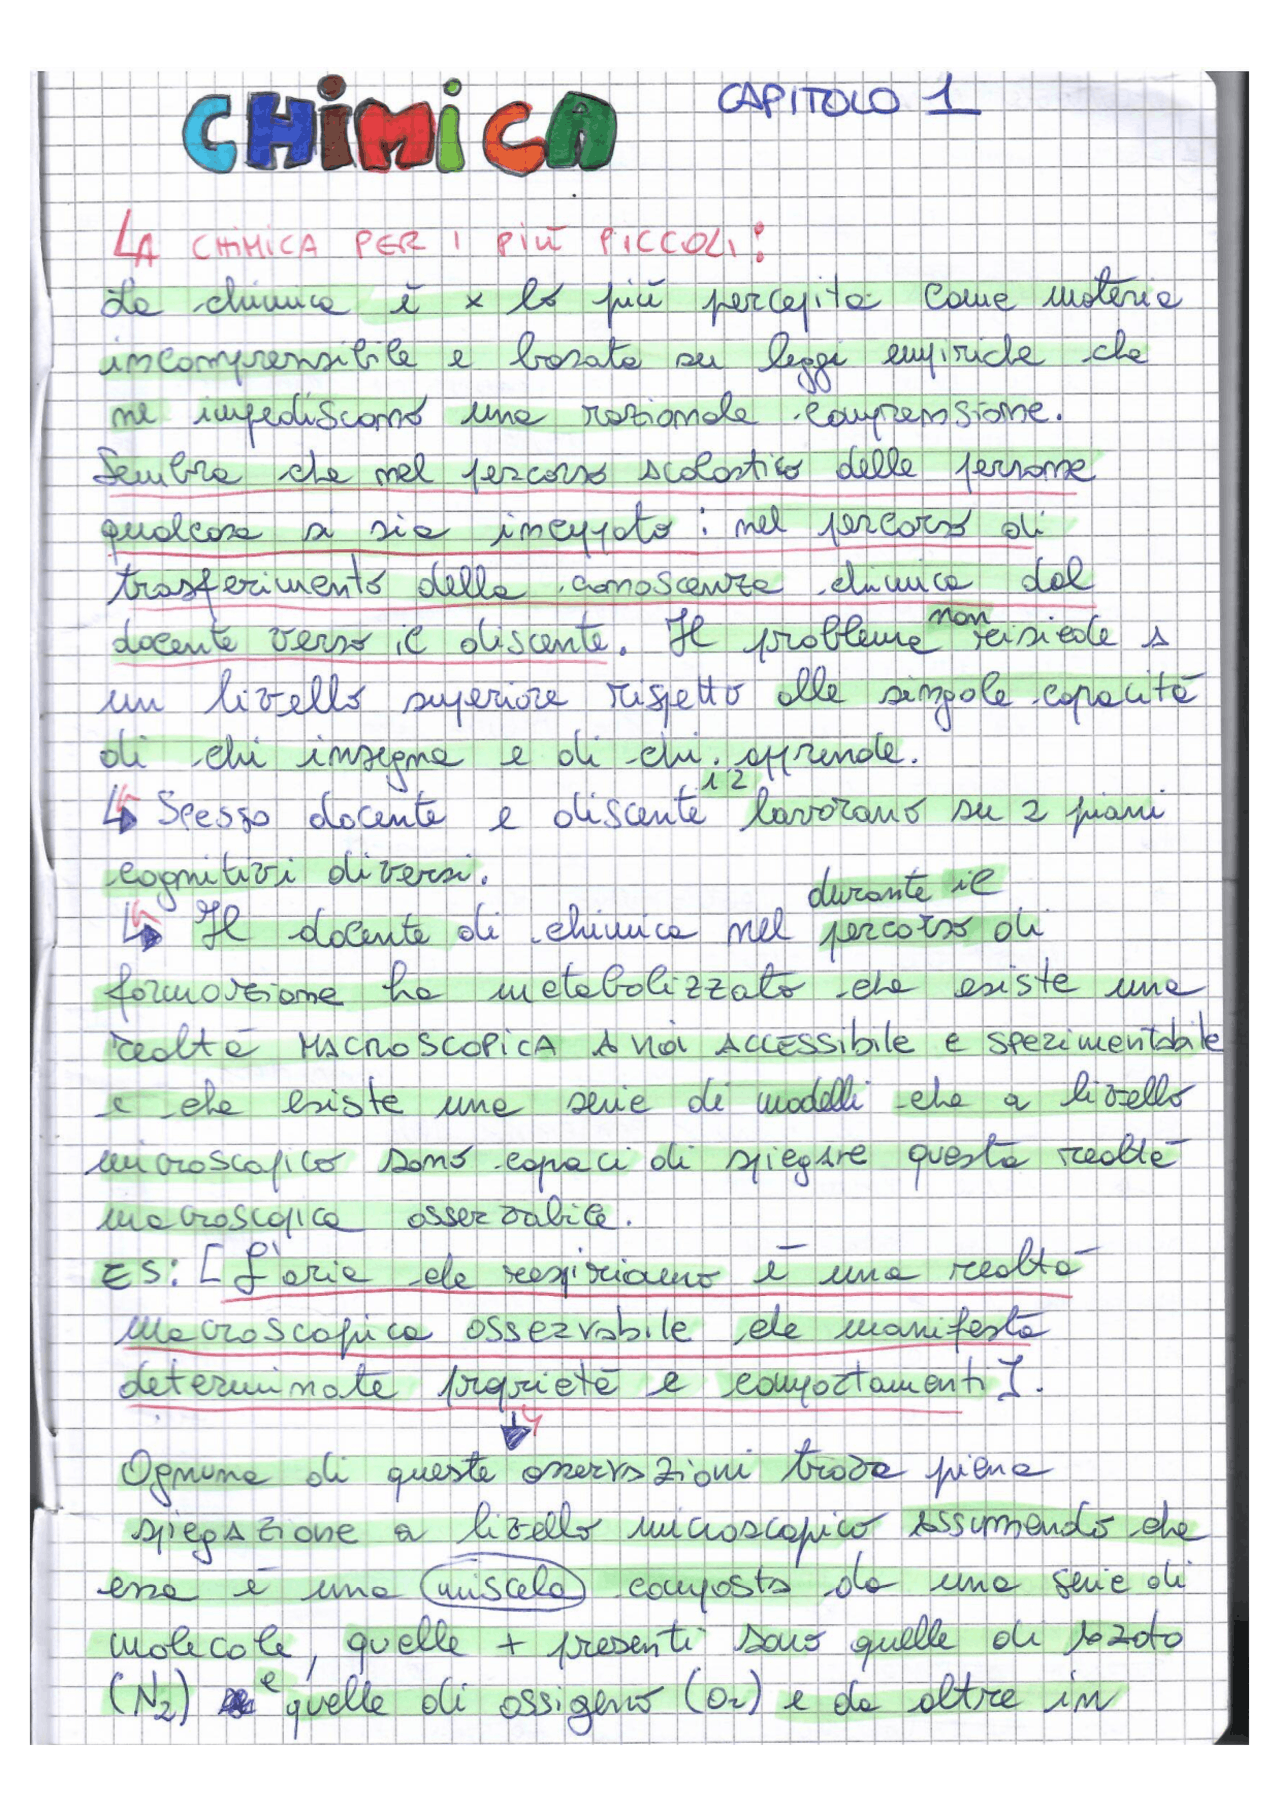 CHiMiCA
CAPITOLO 1
LA CHIMICA PER I PIÚ PICCOLI:
La chimica è x lo più percepita come materia
incomprensibile e basata su leggi empiriche che
ne impediscono una razionale comprensione.
Sembra che nel percorso scolastico delle persone
qualcosa si sia inceppato: nel percorso di
trasferimento della conoscenza chimica dal
docente verso il discente. Il problema non risiede a
un livello superiore rispetto alle singole capacità
di chi insegna e di chi apprende.
Spesso docente e discente 1 2 lavorano su 2 piani
cognitivi diversi.
durante il
Il docente di chimica nel percorso di
formazione ha metabolizzato che esiste una
realtà MACROSCOPICA A NOI ACCESSIBILE E SPERIMENTABILE
e che esiste una serie di modelli che a livello
microscopico sono capaci di spiegare questa realtà
macroscopica osservabile.
ES: [L'aria che respiriamo è una realtà
macroscopica osservabile che manifesta
determinate proprietà e comportamenti].
Ognuna di queste osservazioni trova piena
spiegazione a livello microscopico assumendo che
essa è una miscela composta da una serie di
molecole, quelle + presenti sono quelle di azoto
(N2) e quelle di ossigeno (O2) e da altre in